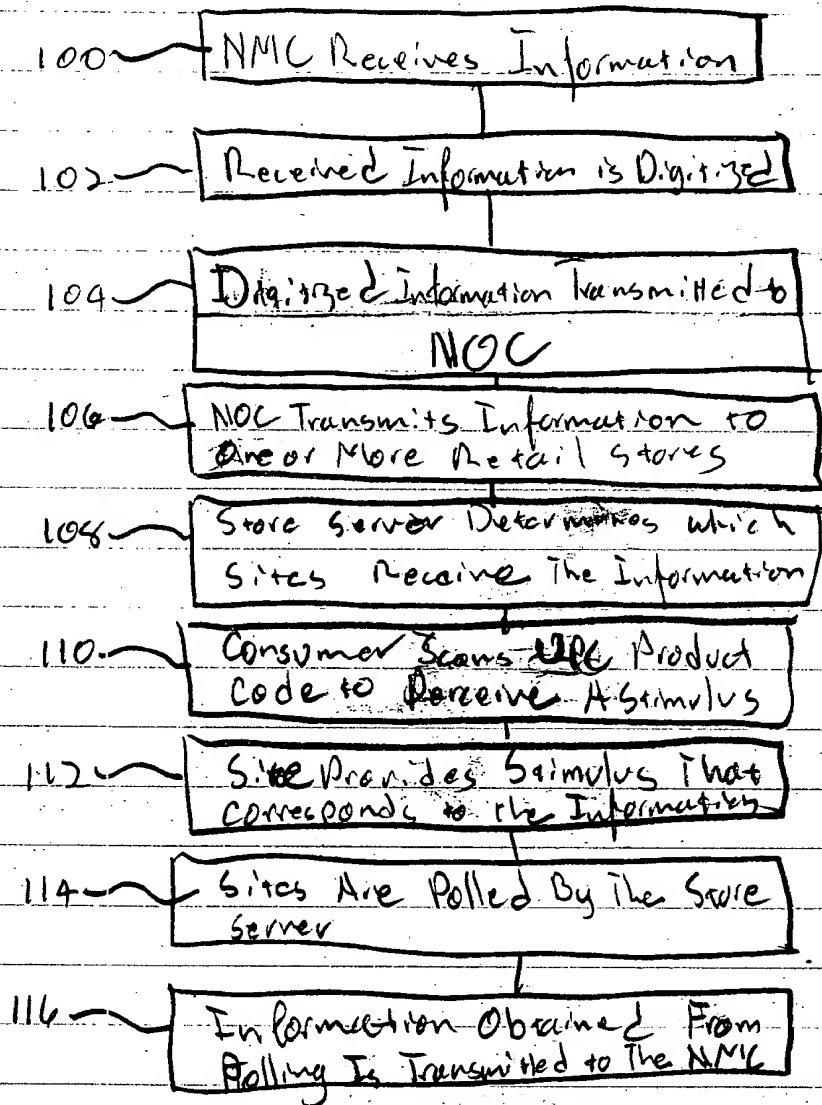 100 NMC Receives Information
102 Received Information is Digitized
104 Digitized Information Transmitted to
NOC
106 NOC Transmits Information to
One or More Retail Stores
108 Store Server Determines which
Sites Receive The Information
110 Consumer Scans UPC Product
Code to Perceive A Stimulus
112 Site Provides Stimulus That
corresponds to the Information
114 Sites Are Polled By The Store
Server
116 Information Obtained From
Polling Is Transmitted to The NMC